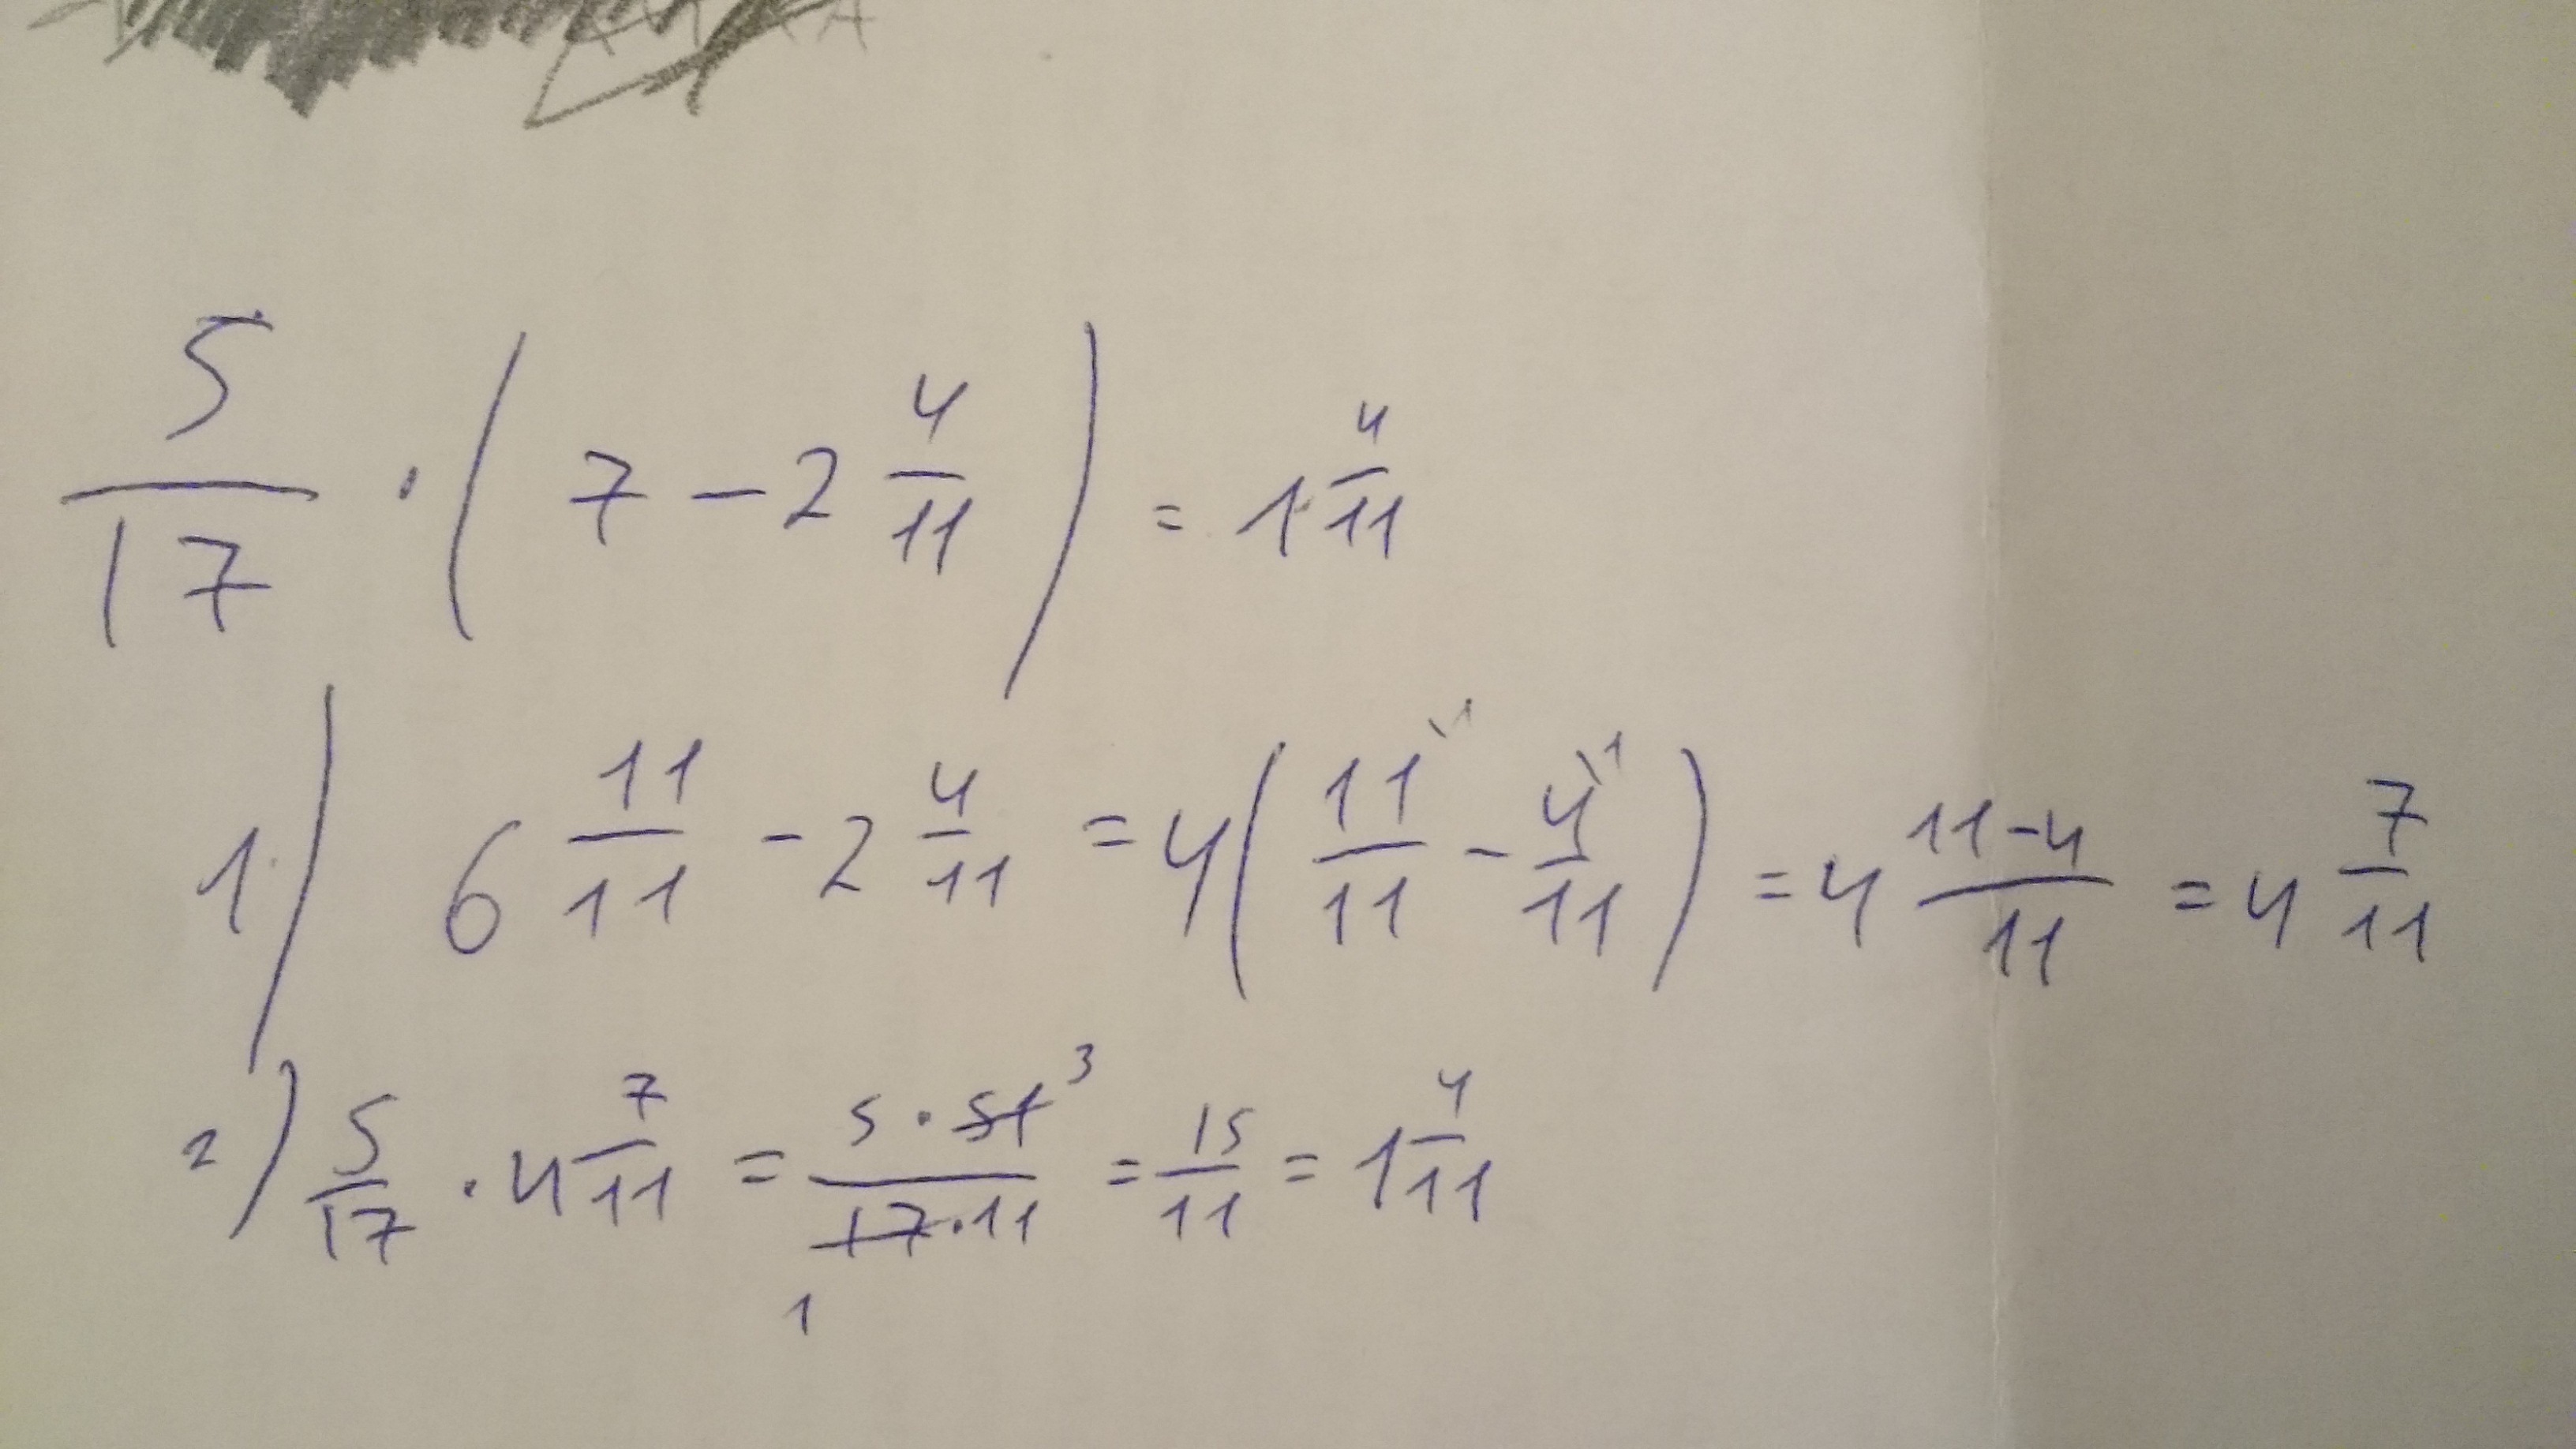 5/17 · (7 - 2 4/11) = 1 4/11
1) 6 11/11 - 2 4/11 = 4(11\1/11 - 4\1/11) = 4 11-4/11 = 4 7/11
2) 5/17 · 4 7/11 = 5 · 51 3/17 · 11 1 = 15/11 = 1 4/11